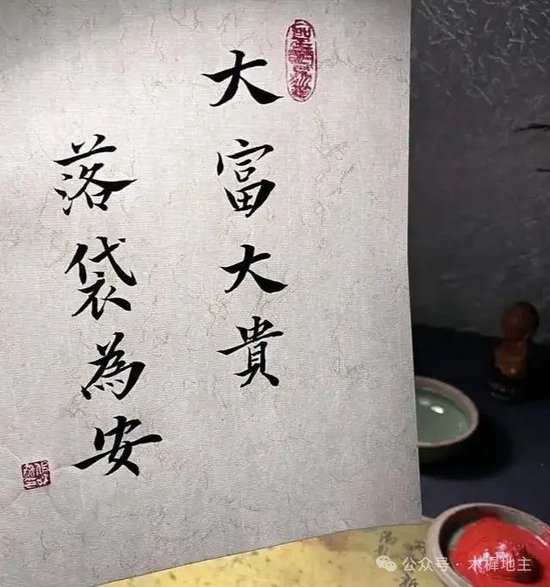 大富大貴
落袋為安
公众号·木樨地主